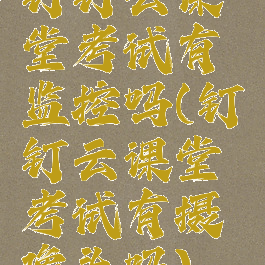 钉钉云课
堂考试有
监控吗(钉
钉云课堂
考试有摄
像头吗)